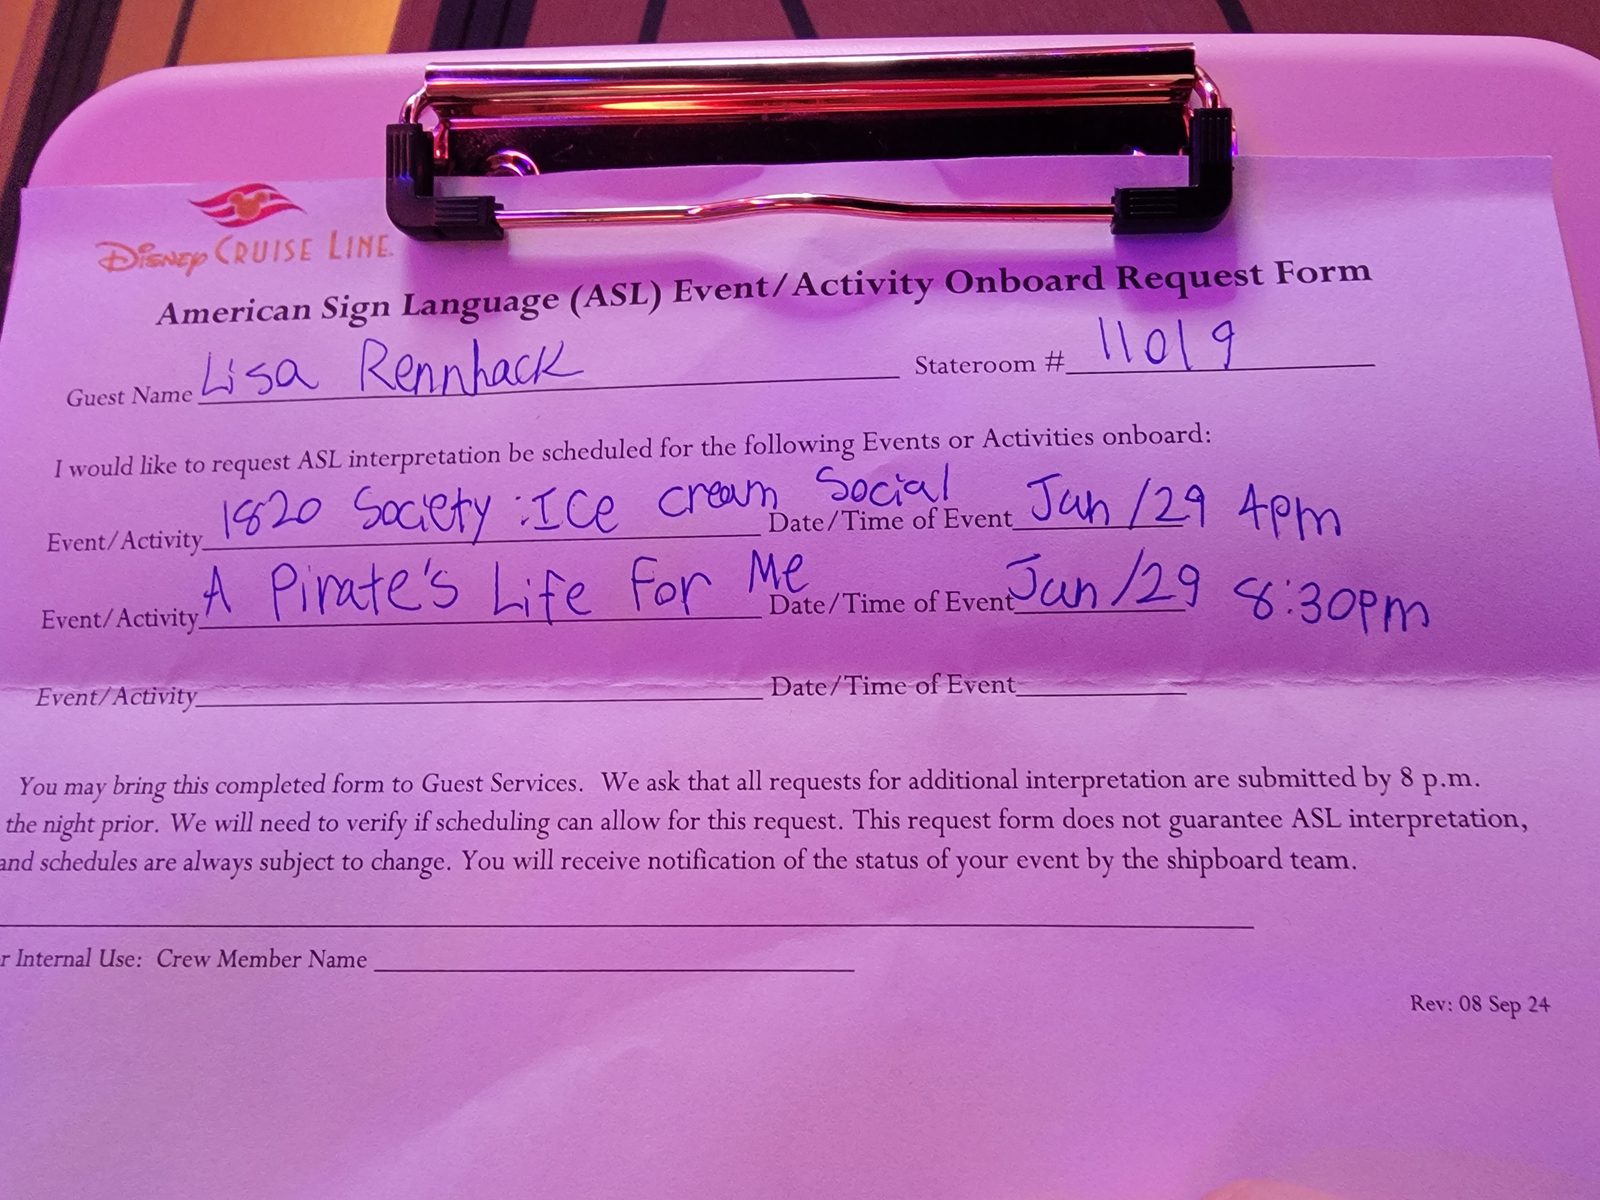 DISNEY CRUISE LINE.
American Sign Language (ASL) Event/Activity Onboard Request Form
Guest Name Lisa Rennhack Stateroom # 11019
I would like to request ASL interpretation be scheduled for the following Events or Activities onboard:
Event/Activity 1820 Society: Ice Cream Social Date/Time of Event Jan/29 4pm
Event/Activity A Pirate's Life For Me Date/Time of Event Jan/29 8:30pm
Event/Activity Date/Time of Event
You may bring this completed form to Guest Services. We ask that all requests for additional interpretation are submitted by 8 p.m.
the night prior. We will need to verify if scheduling can allow for this request. This request form does not guarantee ASL interpretation,
and schedules are always subject to change. You will receive notification of the status of your event by the shipboard team.
r Internal Use: Crew Member Name
Rev: 08 Sep 24